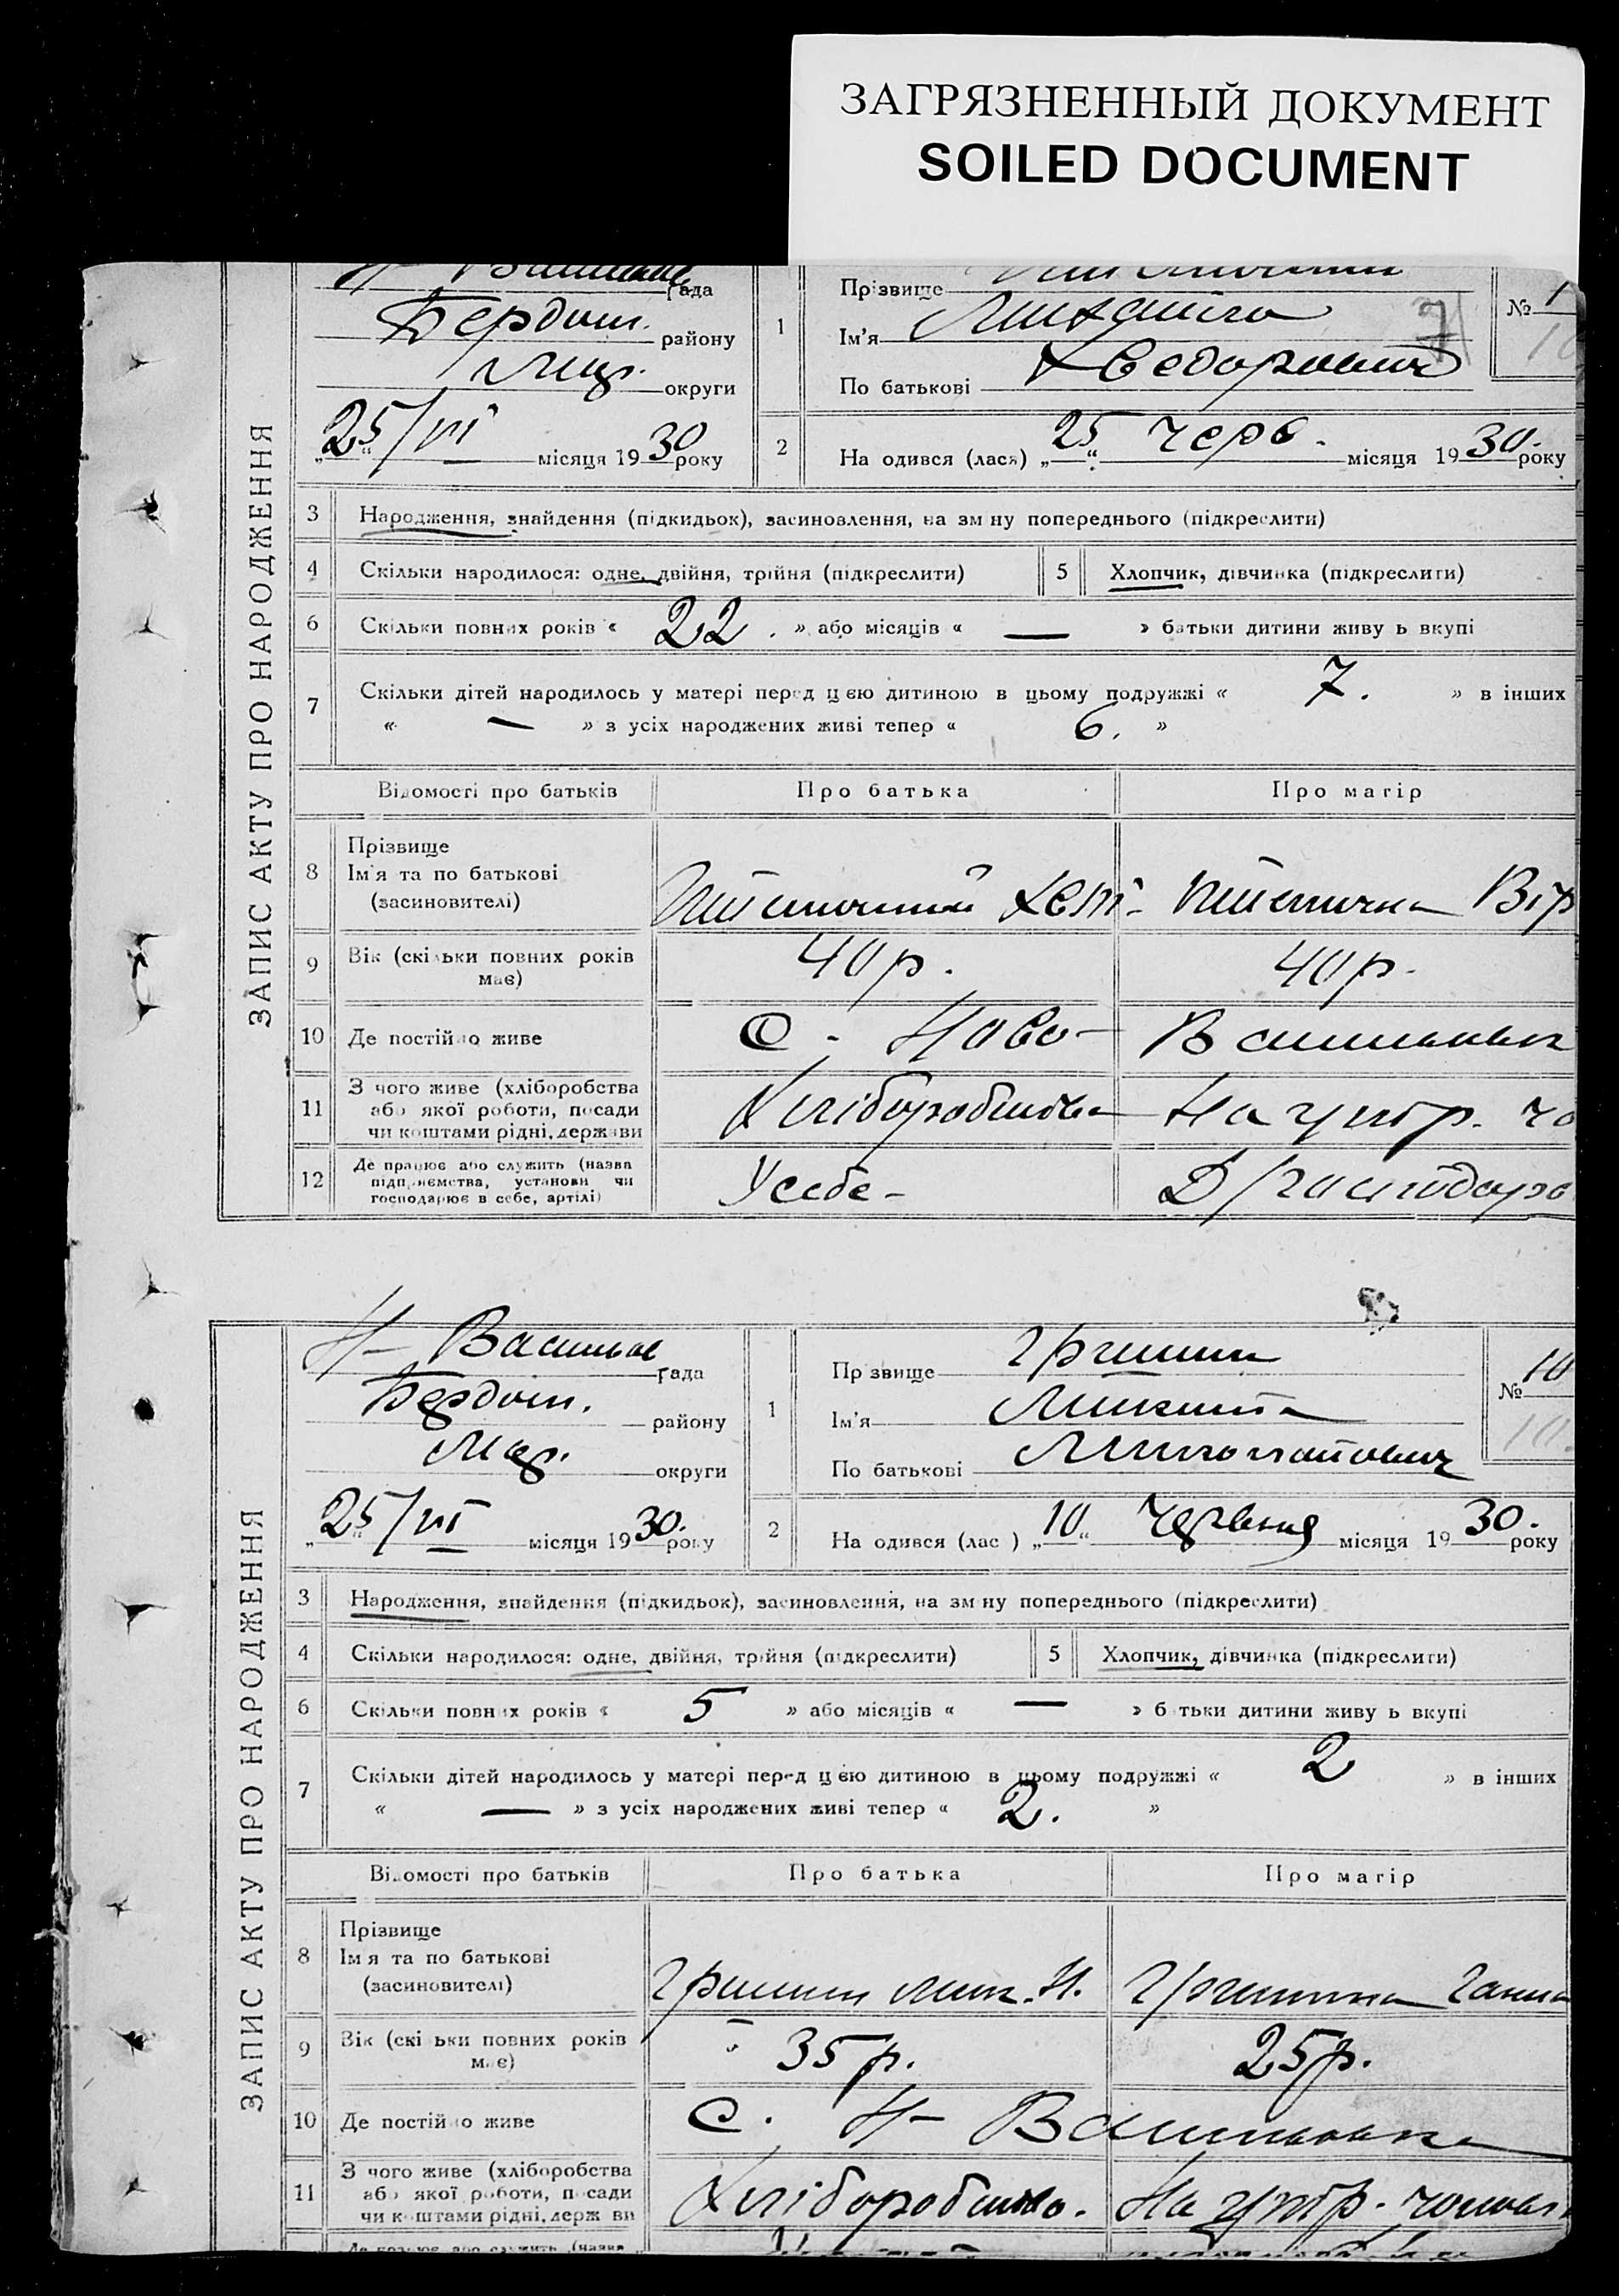 ЗАГРЯЗНЕННЫЙ ДОКУМЕНТ
SOILED DOCUMENT
ЗАПИС АКТУ ПРО НАРОДЖЕННЯ
рада
Бердян. району
округи
„25“/VI місяця 1930 року
1
Прізвище
Ім'я Михайло
По батькові Хведорович
№
2
На одився (лася) „25“ черв. місяця 1930. року
3 Народження, знайдення (підкидьок), засиновлення, на зм ну попереднього (підкреслити)
4 Скільки народилося: одне, двійня, трійня (підкреслити)
5 Хлопчик, дівчинка (підкреслити)
6 Скільки повних років « 22. » або місяців « — » батьки дитини живу ь вкупі
7 Скільки дітей народилось у матері перед цією дитиною в цьому подружжі « 7. » в інших
« — » з усіх народжених живі тепер « 6. »
Відомості про батьків Про батька Про матір
8 Прізвище
Ім'я та по батькові
(засиновителі)
9 Вік (скільки повних років
має)
40 р. 40 р.
10 Де постійно живе
с. Ново-
11 З чого живе (хліборобства
або якої роботи, посади
чи коштами рідні, держави
Хліборобство На утр. чо
12 Де працює або служить (назва
підприємства, установи чи
господарює в себе, артілі)
У себе - Д/господар
ЗАПИС АКТУ ПРО НАРОДЖЕННЯ
Н- Васильев рада
Бердян. району
Мар. округи
„25“/VI місяця 1930. року
1
Пр звище Гришин
Ім'я Микита
По батькові
№ 10
10.
2
На одився (лас ) „10“ червня місяця 1930. року
3 Народження, знайдення (підкидьок), засиновлення, на зм ну попереднього (підкреслити)
4 Скільки народилося: одне, двійня, трійня (підкреслити)
5 Хлопчик, дівчинка (підкреслити)
6 Скільки повних років « 5 » або місяців « — » б тьки дитини живу ь вкупі
7 Скільки дітей народилось у матері перед цією дитиною в цьому подружжі « 2 » в інших
« — » з усіх народжених живі тепер « 2. »
Відомості про батьків Про батька Про матір
8 Прізвище
Ім я та по батькові
(засиновителі)
Гришин Мик. Н. Гришина Ганна
9 Вік (скі ьки повних років
має)
35 р. 25 р.
10 Де постійно живе
с. Н- Васильевка
11 З чого живе (хліборобства
або якої роботи, посади
чи коштами рідні, держ ви
Хліборобство. На утр. чолов